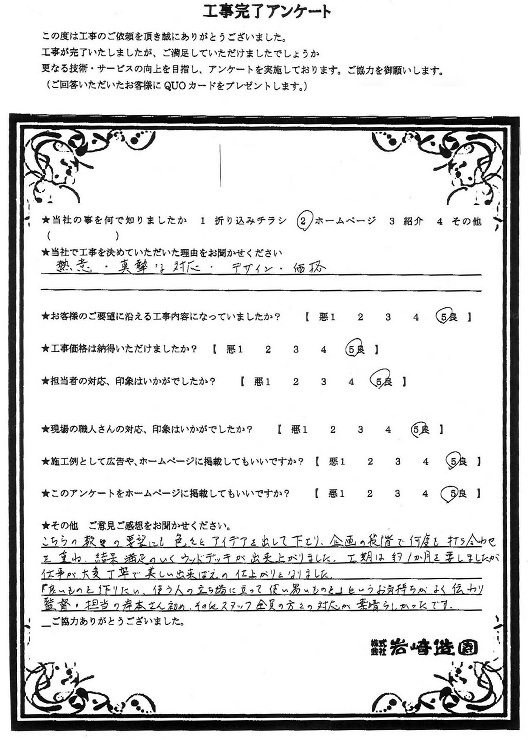 工事完了アンケート
この度は工事のご依頼を頂き誠にありがとうございました。
工事が完了いたしましたが、ご満足していただけましたでしょうか
更なる技術・サービスの向上を目指し、アンケートを実施しております。ご協力を御願いします。
（ご回答いただいたお客様に QUOカードをプレゼントします。）
★当社の事を何で知りましたか 1 折り込みチラシ 2 ホームページ 3 紹介 4 その他
（ ）
★当社で工事を決めていただいた理由をお聞かせください
熱意・真摯な対応・デザイン・価格
★お客様のご要望に沿える工事内容になっていましたか？ 【 悪1 2 3 4 5良 】
★工事価格は納得いただけましたか？ 【 悪1 2 3 4 5良 】
★担当者の対応、印象はいかがでしたか？ 【 悪1 2 3 4 5良 】
★現場の職人さんの対応、印象はいかがでしたか？ 【 悪1 2 3 4 5良 】
★施工例として広告や、ホームページに掲載してもいいですか？ 【 悪1 2 3 4 5良 】
★このアンケートをホームページに掲載してもいいですか？ 【 悪1 2 3 4 5良 】
★その他 ご意見ご感想をお聞かせください。
こちらの数々の要望にも色々とアイデアを出して下さり、企画の段階で何度も打ち合わせ
を重ね、結果満足のいくウッドデッキが出来上がりました。工期は約1か月を要しましたが
仕事が大変丁寧で美しい出来ばえの仕上がりとなりました。
『良いものを作りたい、使う人の立ち場に立って使い易いものを』というお気持ちがよく伝わり
監督・担当の岸本さん初め、それぞれスタッフ全員の方々の対応が素晴らしかったです。
ご協力ありがとうございました。
株式会社 岩崎造園